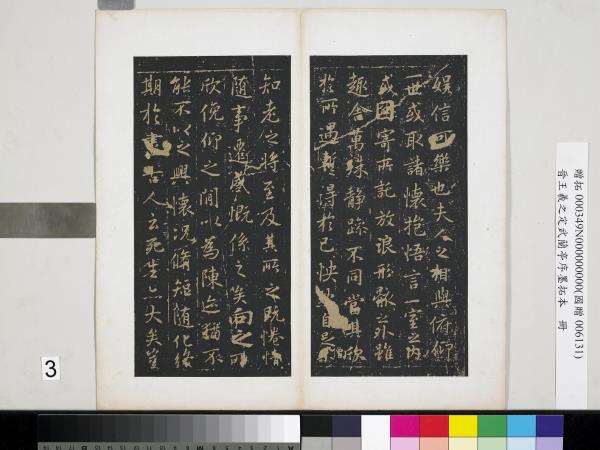 娛信可樂也夫人之相與俯仰
一世或取諸懷抱悟言一室之內
或因寄所託放浪形骸之外雖
趣舍萬殊靜躁不同當其欣
於所遇暫得於己怏自足不
知老之將至及其所之既惓情
隨事遷感慨係之矣向之所
欣俛仰之間以為陳迹猶不
能不以之興懷況脩短隨化終
期於盡古人云死生亦大矣豈
贈拓 000349N000000000(國贈 006131)
晉王羲之定武蘭亭序墨拓本 冊
3